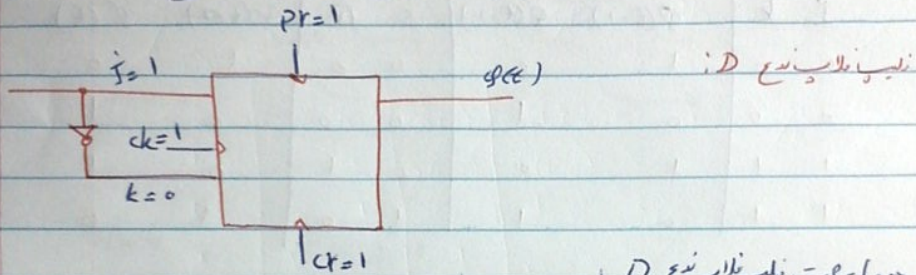 pr=1
j=1
φ(t)
فلیپ فلاپ نوع D:
ck=1
k=0
cr=1
فلیپ فلاپ نوع D